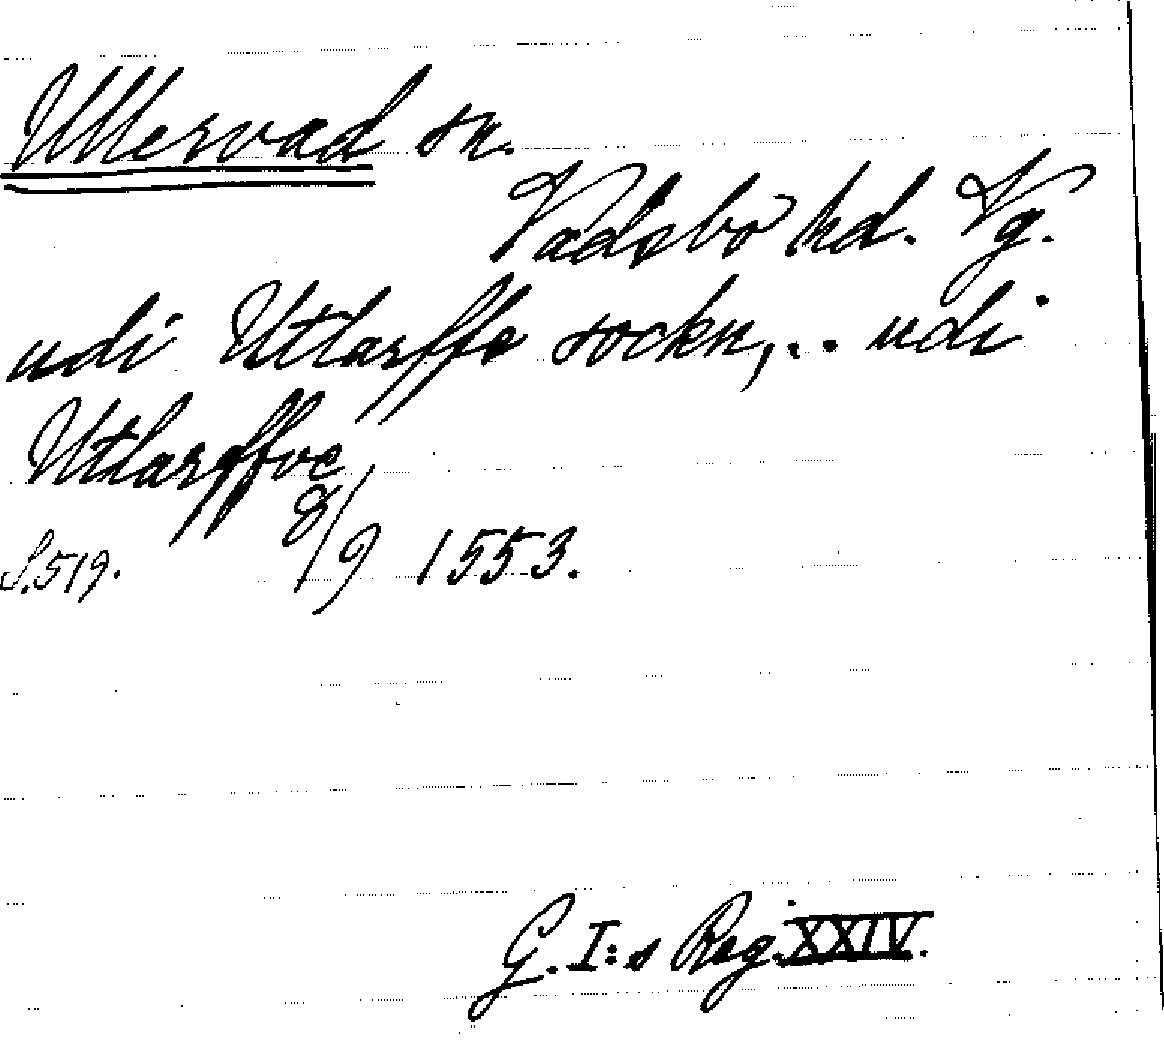 Ullervad sn.
Vadsbo hd. Vg.
udi Utlarffe sockn, .. udi
Utlarffve
8/9 1553.
S. 519.
G. I:s Reg. XXIV.